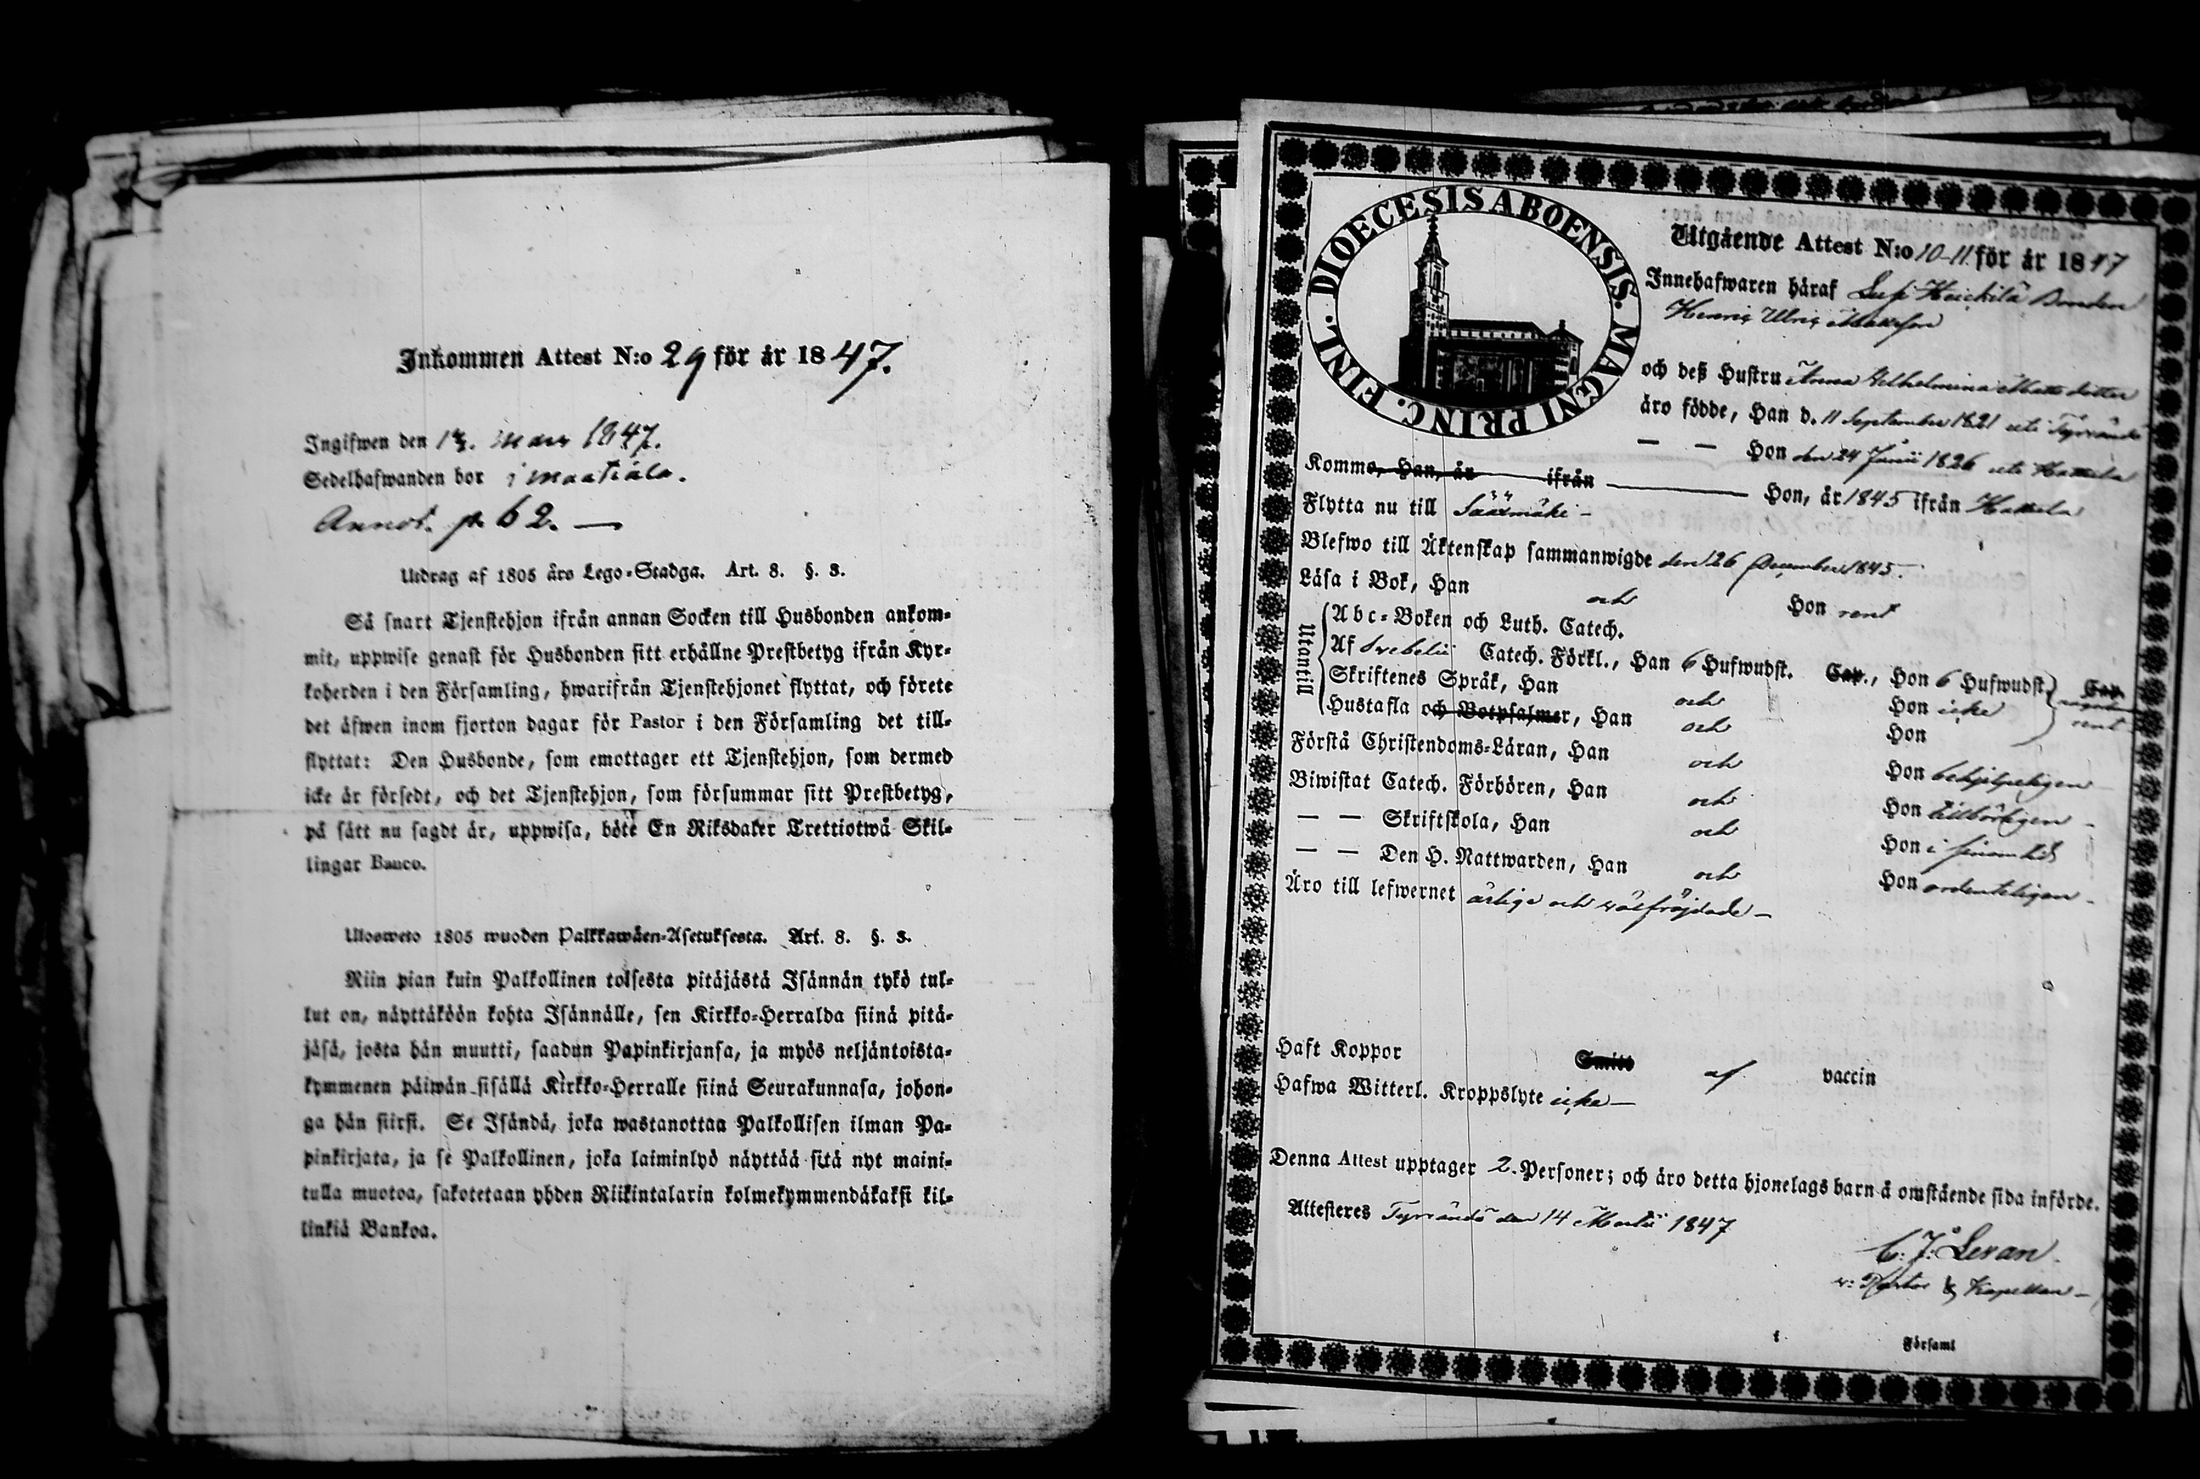 Inkommen Attest N:o 29 för år 1847.
Ingifwen den 1 mars 1847.
Sedelhafwanden bor i maatiala.
Annot. p. 62. —
Utdrag af 1805 års Lego-Stadga. Art. 8. §. 3.
Så snart Tjenstehjon ifrån annan Socken till Husbonden ankom-
mit, uppwise genast för Husbonden sitt erhållne Prestbetyg ifrån Kyr-
koherden i den Församling, hwarifrån Tjenstehjonet flyttat, och förete
det äfwen inom fjorton dagar för Pastor i den Församling det till-
flyttat: Den Husbonde, som emottager ett Tjenstehjon, som dermed
icke är försedt, och det Tjenstehjon, som försummar sitt Prestbetyg,
på sätt nu sagdt är, uppwisa, böte En Riksdaler Trettiotwå Skil-
lingar Banco.
Ulosweto 1805 wuoden Palkkawäen-Asetuksesta. Art. 8. §. 3.
Niin pian kuin Palkollinen toisesta pitäjästä Isännän tykö tul-
lut on, näyttäköön kohta Isännälle, sen Kirkko-Herralda siinä pitä-
jäsä, josta hän muutti, saadun Papinkirjansa, ja myös neljäntoista-
kymmenen päiwän sisällä Kirkko-Herralle siinä Seurakunnasa, johon-
ga hän siirst. Se Isändä, joka wastanottaa Palkollisen ilman Pa-
pinkirjata, ja se Palkollinen, joka laiminlyö näyttää sitä nyt maini-
tulla muotoa, sakotetaan yhden Riikintalarin kolmekymmendäkaksi kil-
linkiä Bankoa.
DIOECESIS ABOENSIS. MAGNI PRINC. FINL.
Utgående Attest N:o 10-11 för år 1847
Innehafwaren häraf Heickilä Bonden
Henric Ulric Mattsson
och deß Hustru Anna Wilhelmina Matts dotter
äro födde, Han d. 11 September 1821 uti Tyrvändö
— — Hon den 24 Junii 1826 uti Hattula
Komme, Han, år ifrån Hon, år 1845 ifrån Hattula
Flytta nu till Sääxmäki -
Blefwo till Äktenskap sammanwigde den 26 December 1845.
Läsa i Bok, Han och Hon rent
Utantill
Abc-Boken och Luth. Catech.
Af Svebelii Catech. Förkl., Han 6 Hufwudst. Cap., Hon 6 Hufwudst. Cap.
Skriftenes Språk, Han och Hon icke rent
Hustafla och Botpsalmer, Han och Hon
Förstå Christendoms-Läran, Han och Hon behjelpeligen
Biwistat Catech. Förhören, Han och Hon tillbörligen -
— — Skriftskola, Han och Hon i sinom tid
— — Den H. Nattwarden, Han och Hon ordenteligen -
Äro till lefwernet ärlige och wälfräjdade -
Haft Koppor Smitt af vaccin
Hafwa Witterl. Kroppslyte icke —
Denna Attest upptager 2. Personer; och äro detta hjonelags barn å omstående sida införde.
Attesteres Tyrvändö den 14 Martii 1847
C. J. Levan.
v: Pastor & Kapellan -
Församl